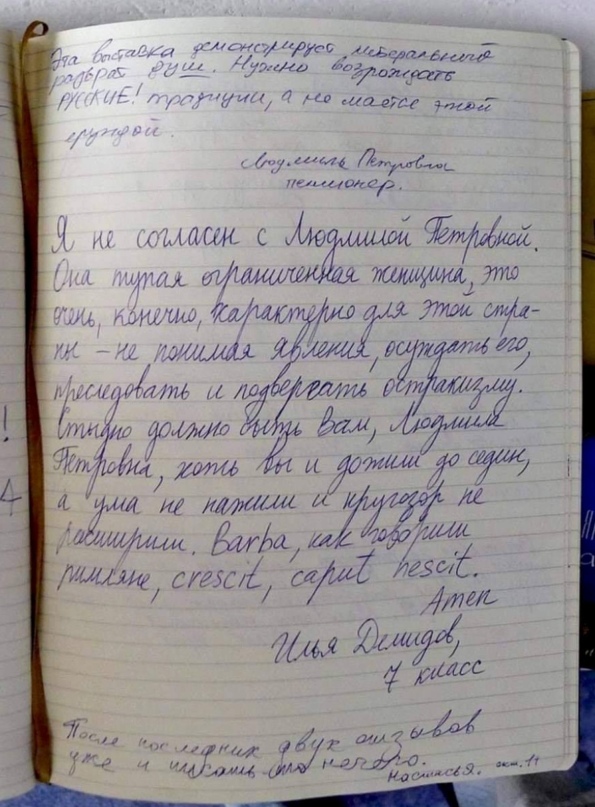 Эта выставка демонстрирует либеральный
разврат душ. Нужно возрождать
РУССКИЕ! традиции, а не маятся этой
ерундой.
Людмила Петровна
пенсионер.
Я не согласен с Людмилой Петровной.
Она тупая ограниченная женщина, это
очень, конечно, характерно для этой стра-
ны – не понимая явления, осуждать его,
преследовать и подвергать остракизму.
Стыдно должно быть Вам, Людмила
Петровна, хоть вы и дожили до седин,
а ума не нажили и кругозор не
расширили. Barba, как говорили
римляне, crescit, caput nescit.
Amen
Илья Демидов,
7 класс
!
4
После последних двух отзывов
уже и писать нечего.
Настасья.